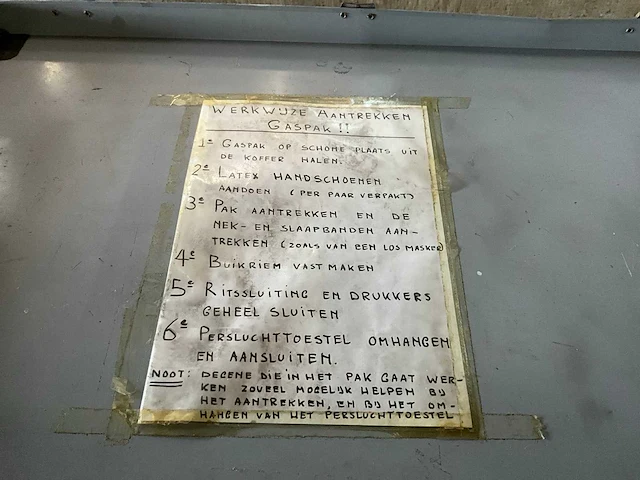 WERKWIJZE AANTREKKEN
GASPAK !!
1e GASPAK OP SCHONE PLAATS UIT
DE KOFFER HALEN.
2e LATEX HANDSCHOENEN
AANDOEN (PER PAAR VERPAKT)
3e PAK AANTREKKEN EN DE
NEK- EN SLAAPBANDEN AAN-
TREKKEN (ZOALS VAN EEN LOS MASKER)
4e BUIKRIEM VAST MAKEN
5e RITSSLUITING EN DRUKKERS
GEHEEL SLUITEN
6e PERSLUCHTTOESTEL OMHANGEN
EN AANSLUITEN.
NOOT: DEGENE DIE IN HET PAK GAAT WER-
KEN ZOVEEL MOGELIJK HELPEN BIJ
HET AANTREKKEN, EN BIJ HET OM-
HANGEN VAN HET PERSLUCHTTOESTEL